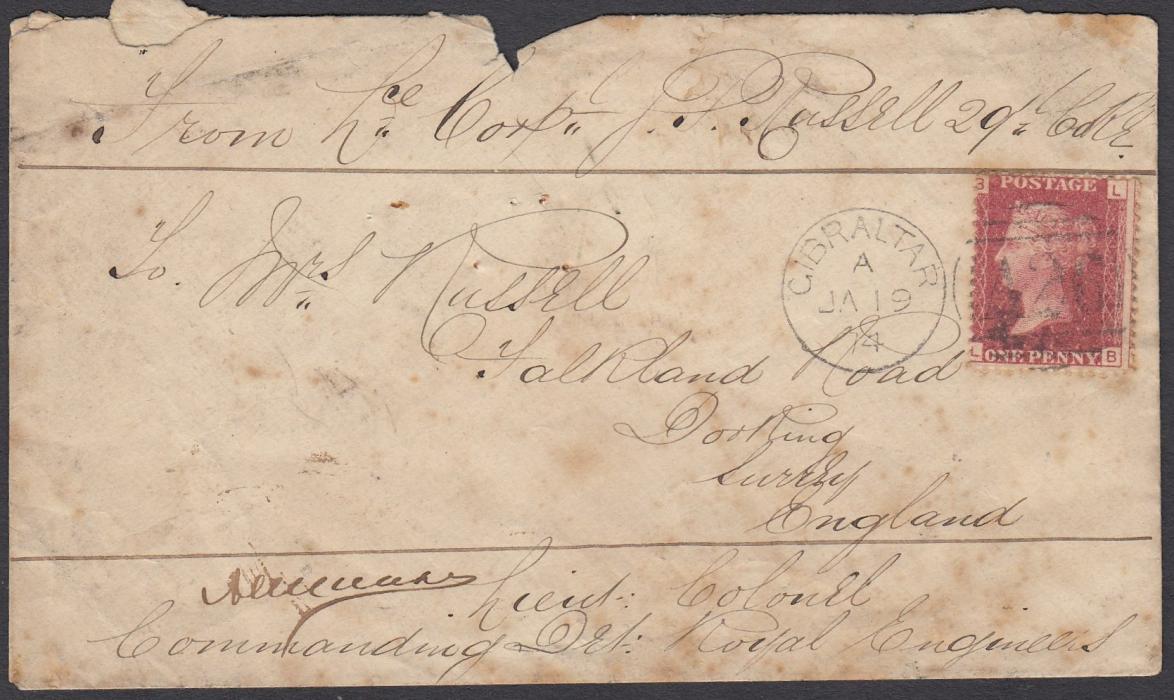 From Lce Corpl J. P. Russell 29th Co RE
To. Mrs Russell
Falkland Road
Dorking
Surrey
England
Lieut: Colonel
Commanding Det: Royal Engineers
GIBRALTAR
A
JA 19
74
B L
POSTAGE
A26
L ONE PENNY B